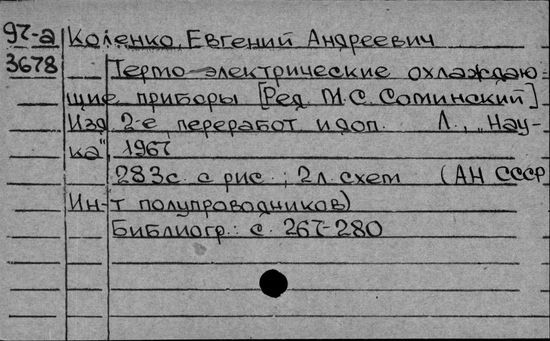 97-а Коленко, Евгений Андреевич
3678 Термо-электрические охлаждаю-
щие приборы [Ред. М.С. Соминский]
Изд 2-е, переработ и доп. Л., „Нау-
ка", 1967
283с. с рис.; 2л. схем (АН СССР
Ин-т полупроводников)
Библиогр.: с. 267-280